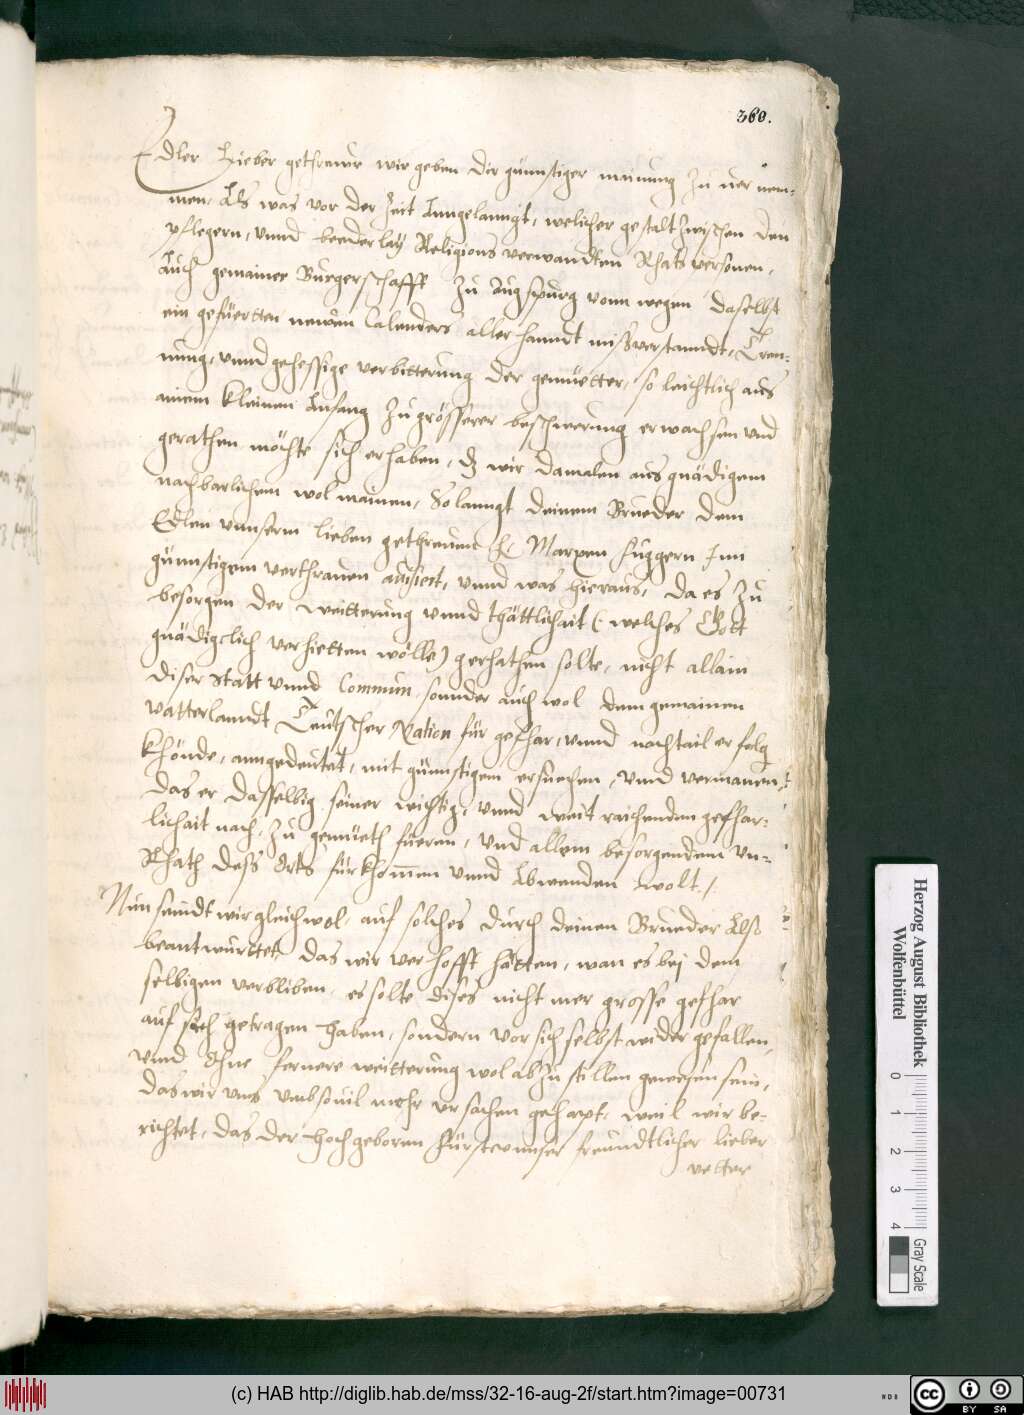 360.
Edler Lieber getrewr wir geben dir günnstiger mainung zu uernem-
men, Als was vor der Zeit Anngelanngt, welicher gestalt zwischen den
Pflegern, vnnd beederlay Religions verwandten Rhats personen,
Auch gemainer Burgerschafft zu Augspurg vonn wegen daselbst
ein gefüertten newen Calenders allerhanndt mißverstanndt, Tren-
nung, vnnd gehessige verbitterung der gemüetter, so leichtlich aus
ainem kleinen Anfang zu grösserer beschwerung erwachsen vnd
gerathen möchte sich erhaben, dz wir damalen aus gnädigem
nachbarlichem wolmainen, Solanngt deinem Brueder dem
Edlen vnnserm lieben gethrewen H. Marxen Fuggern Inn
günnstigem verthrauen auisiert, vnnd was hieraus, da es zu
besorgen der weitterung vnnd thättlichait (: welches Gott
gnädigclich verhietten wölle) gerhathen solte, nicht allain
diser Statt vnnd Commun, sonnder auch wol dem gemainen
Vatterlanndt Teutscher Nation für gefhar, vnnd nachtail erfolg
khönde, anngedeutet, mit günnstigem ersuechen, vnnd vermanen,
das er dasselbig seiner wichtig, vnnd weit raichenden gefhar-
lichait nach, zu gemüeth füeren, vnd allem besorgendem Vn-
Rhath deß Orts fürkhommen vnnd Abwenden wolt./.
Nun seindt wir gleichwol, auf solches durch deinen Brueder Alß
beantwurttet, das wir verhofft hätten, wan es bei dem
selbigen verbliben, es solte dises nicht mer grosse gefhar
auf sich getragen haben, sondern vor sich selbst widergefallen,
vnnd Ohne fernere weitterung wol abzustillen gewesen sein,
das wir vns vmbsouil mehr vrsachen gehapt, weil wir be-
richtet, das der Hochgeboren Fürst vnnser freundtlicher lieber
vetter
Herzog August Bibliothek
Wolfenbüttel
0 1 2 3 4
Gray Scale
(c) HAB http://diglib.hab.de/mss/32-16-aug-2f/start.htm?image=00731
cc BY SA